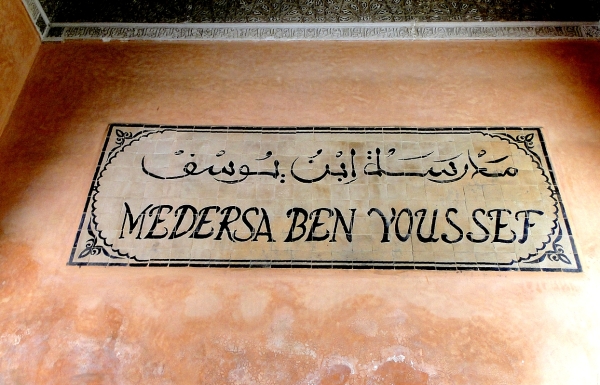 مَدْرَسَة اِبْنُ يُوسْفْ
MEDERSA BEN YOUSSEF